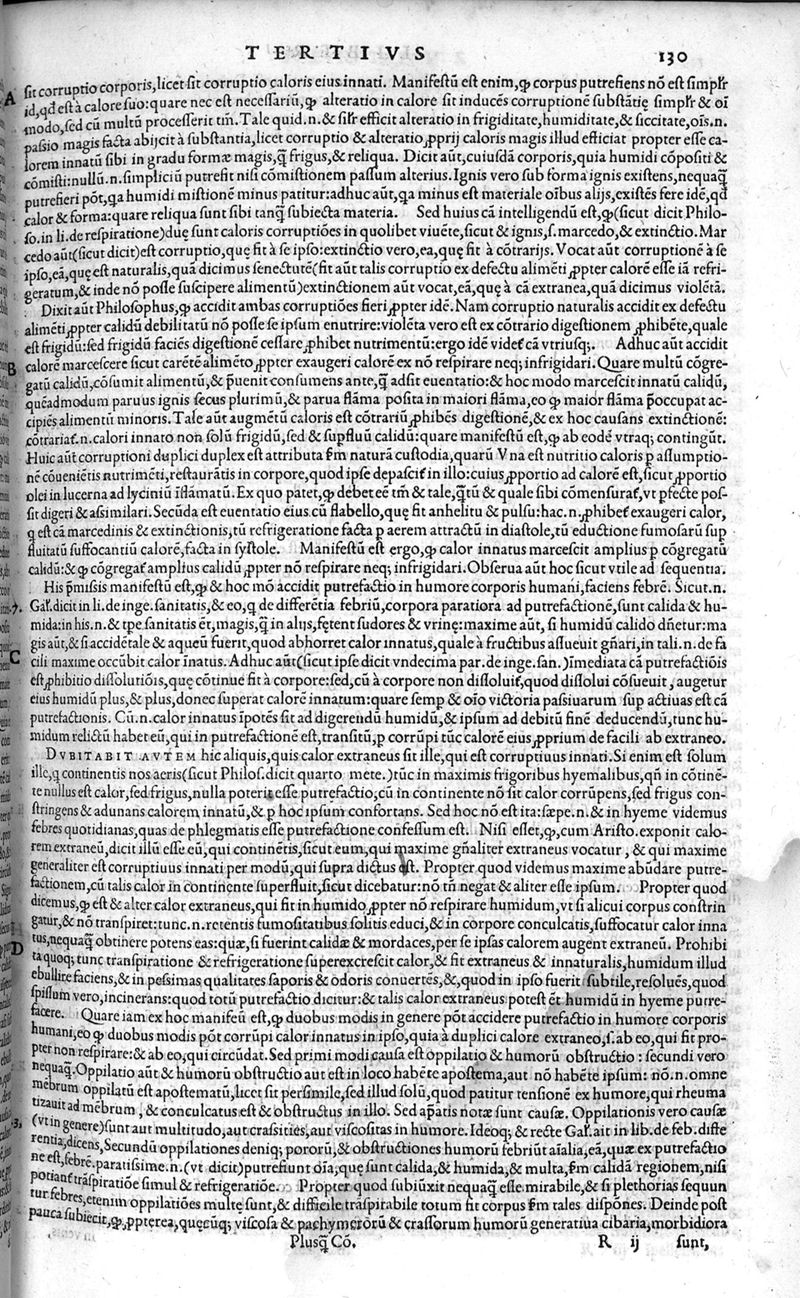 TERTIVS 130
ſit corruptio corporis, licet ſit corruptio caloris eius innati. Manifeſtũ eſt enim, ꝙ corpus putrefiens nõ eſt ſimplr̃
A
id, qđ eſt à calore ſuo: quare nec eſt neceſſariũ, ꝙ alteratio in calore ſit inducẽs corruptionẽ ſubſtãtię ſimplr̃ & oĩ
modo, ſed cũ multũ proceſſerit tm̃. Tale quid. n. & ſilr̃ efficit alteratio in frigiditate, humiditate, & ſiccitate, oĩs. n.
paſsio magis facta abijcit à ſubſtantia, licet corruptio & alteratio ꝓprij caloris magis illud efficiat propter eſſe ca-
lorem innatũ ſibi in gradu formæ magis, q̃ frigus, & reliqua. Dicit aũt, cuiuſdã corporis, quia humidi cõpoſiti &
cõmiſti: nullũ. n. ſimpliciũ putrefit niſi cõmiſtionem paſſum alterius. Ignis vero ſub forma ignis exiſtens, nequaq̃
putrefieri põt, qa humidi miſtionẽ minus patitur: adhuc aũt, qa minus eſt materiale oĩbus alijs, exiſtẽs fere idẽ, qđ
calor & forma: quare reliqua ſunt ſibi tanq̃ ſubiecta materia. Sed huius cã intelligendũ eſt, ꝙ (ſicut dicit Philo-
ſo. in li. de reſpiratione) duę ſunt caloris corruptiões in quolibet viuẽte, ſicut & ignis, ſ. marcedo, & extinctio. Mar
cedo aũt (ſicut dicit) eſt corruptio, quę fit à ſe ipſo: extinctio vero, ea, quę fit à cõtrarijs. Vocat aũt corruptionẽ à ſe
ipſo, eã, quę eſt naturalis, quã dicimus ſenectutẽ (fit aũt talis corruptio ex defectu alimẽti ꝓpter calorẽ eſſe iã refri-
geratum, & inde nõ poſſe ſuſcipere alimentũ) extinctionem aũt vocat, eã, quę à cã extranea, quã dicimus violẽtã.
Dixit aũt Philoſophus, ꝙ accidit ambas corruptiões fieri ꝓpter idẽ. Nam corruptio naturalis accidit ex defectu
alimẽti ꝓpter calidũ debilitatũ nõ poſſe ſe ipſum enutrire: violẽta vero eſt ex cõtrario digeſtionem ꝓhibẽte, quale
eſt frigidũ: ſed frigidũ faciẽs digeſtionẽ ceſſare ꝓhibet nutrimentũ: ergo idẽ videt̃ cã vtriuſq;. Adhuc aũt accidit
B
calorẽ marceſcere ſicut carẽtẽ alimẽto ꝓpter exaugeri calorẽ ex nõ reſpirare neq; infrigidari. Quare multũ cõgre-
gatũ calidũ, cõſumit alimentũ, & p̃uenit conſumens ante, q̃ adſit euentatio: & hoc modo marceſcit innatũ calidũ,
quẽadmodum paruus ignis ſecus plurimũ, & parua flãma poſita in maiori flãma, eo ꝙ maior flãma p̃occupat ac-
cipiẽs alimentũ minoris. Tale aũt augmẽtũ caloris eſt cõtrariũ ꝓhibẽs digeſtionẽ, & ex hoc cauſans extinctionẽ:
cõtrariat̃. n. calori innato non ſolũ frigidũ, ſed & ſupfluũ calidũ: quare manifeſtũ eſt, ꝙ ab eodẽ vtraq; contingũt.
Huic aũt corruptioni duplici duplex eſt attributa ſm̃ naturã cuſtodia, quarũ Vna eſt nutritio caloris ꝑ aſſumptio-
nẽ cõueniẽtis nutrimẽti, reſtaurãtis in corpore, quod ipſe depaſcit̃ in illo: cuius ꝓportio ad calorẽ eſt, ſicut ꝓportio
olei in lucerna ad lyciniũ ĩflãmatũ. Ex quo patet, ꝙ debet eẽ tm̃ & tale, q̃tũ & quale ſibi cõmenſurat̃, vt ꝑfecte poſ-
ſit digeri & aſsimilari. Secũda eſt euentatio eius cũ flabello, quę fit anhelitu & pulſu: hac. n. ꝓhibet̃ exaugeri calor,
q eſt cã marcedinis & extinctionis, tũ refrigeratione facta ꝑ aerem attractũ in diaſtole, tũ eductione fumoſarũ ſup
fluitatũ ſuffocantiũ calorẽ, facta in ſyſtole. Manifeſtũ eſt ergo, ꝙ calor innatus marceſcit amplius ꝑ cõgregatũ
calidũ: & ꝙ cõgregat̃ amplius calidũ ꝓpter nõ reſpirare neq; infrigidari. Obſerua aũt hoc ſicut vtile ad ſequentia.
His p̃miſsis manifeſtũ eſt, ꝙ & hoc mõ accidit putrefactio in humore corporis humani, faciens febrẽ. Sicut. n.
7.
Gal̃. dicit in li. de inge. ſanitatis, & eo, q de differẽtia febriũ, corpora paratiora ad putrefactionẽ, ſunt calida & hu-
mida: in his. n. & tp̃e ſanitatis ẽt, magis, q̃ in alijs, fętent ſudores & vrinę: maxime aũt, ſi humidũ calido dñetur: ma
gis aũt, & ſi accidẽtale & aqueũ fuerit, quod abhorret calor innatus, quale à fructibus aſſueuit gñari, in tali. n. de fa
C
cili maxime occũbit calor ĩnatus. Adhuc aũt (ſicut ipſe dicit vndecima par. de inge. ſan.) ĩmediata cã putrefactiõis
eſt ꝓhibitio diſſolutiõis, quę cõtinue fit à corpore: ſed, cũ à corpore non diſſoluit̃, quod diſſolui cõſueuit, augetur
eius humidũ plus, & plus, donec ſuperat calorẽ innatum: quare ſemp & oĩo victoria paſsiuarum ſup actiuas eſt cã
putrefactionis. Cũ. n. calor innatus ĩpotẽs ſit ad digerendũ humidũ, & ipſum ad debitũ finẽ deducendũ, tunc hu-
midum relictũ habet eũ, qui in putrefactionẽ eſt, tranſitũ, ꝑ corrũpi tũc calorẽ eius ꝓprium de facili ab extraneo.
DVBITABIT AVTEM hic aliquis, quis calor extraneus ſit ille, qui eſt corruptiuus innati. Si enim eſt ſolum
ille, q continentis nos aeris (ſicut Philoſ. dicit quarto mete.) tũc in maximis frigoribus hyemalibus, qñ in cõtinẽ-
te nullus eſt calor, ſed frigus, nulla poterit eſſe putrefactio, cũ in continente nõ ſit calor corrũpens, ſed frigus con-
ſtringens & adunans calorem innatũ, & ꝑ hoc ipſum confortans. Sed hoc nõ eſt ita: ſæpe. n. & in hyeme videmus
febres quotidianas, quas de phlegmatis eſſe putrefactione confeſſum eſt. Niſi eſſet, ꝙ, cum Ariſto. exponit calo-
rem extraneũ, dicit illũ eſſe eũ, qui continẽtis, ſicut eum, qui maxime gñaliter extraneus vocatur, & qui maxime
generaliter eſt corruptiuus innati per modũ, qui ſupra dictus eſt. Propter quod videmus maxime abũdare putre-
factionem, cũ talis calor in continente ſuperfluit, ſicut dicebatur: nõ tñ negat & aliter eſſe ipſum. Propter quod
dicemus, ꝙ eſt & alter calor extraneus, qui fit in humido ꝓpter nõ reſpirare humidum, vt ſi alicui corpus conſtrin
gatur, & nõ tranſpiret: tunc. n. retentis fumoſitatibus ſolitis educi, & in corpore conculcatis, ſuffocatur calor inna
D
tus, nequaq̃ obtinere potens eas: quæ, ſi fuerint calidæ & mordaces, per ſe ipſas calorem augent extraneũ. Prohibi
ta quoq; tunc tranſpiratione & refrigeratione ſuperexcreſcit calor, & fit extraneus & innaturalis, humidum illud
ebullire faciens, & in peſsimas qualitates ſaporis & odoris conuertẽs, &, quod in ipſo fuerit ſubtile, reſoluẽs, quod
ſpiſſum vero, incinerans: quod totũ putrefactio dicitur: & talis calor extraneus poteſt ẽt humidũ in hyeme putre-
facere. Quare iam ex hoc manifeũ eſt, ꝙ duobus modis in genere põt accidere putrefactio in humore corporis
humani, eo ꝙ duobus modis põt corrũpi calor innatus in ipſo, quia à duplici calore extraneo, ſ. ab eo, qui fit pro-
pter non reſpirare: & ab eo, qui circũdat. Sed primi modi cauſa eſt oppilatio & humorũ obſtructio: ſecundi vero
nequaq̃. Oppilatio aũt & humorũ obſtructio aut eſt in loco habẽte apoſtema, aut nõ habẽte ipſum: nõ. n. omne
mẽbrum oppilatũ eſt apoſtematũ, licet ſit perſimile, ſed illud ſolũ, quod patitur tenſionẽ ex humore, qui rheuma
tizauit ad mẽbrum, & conculcatus eſt & obſtructus in illo. Sed ap̃atis notæ ſunt cauſæ. Oppilationis vero cauſæ
3,
(vt in genere) ſunt aut multitudo, aut craſsities, aut viſcoſitas in humore. Ideoq; & recte Gal̃. ait in lib. de feb. diffe
rentia, dicens, Secundũ oppilationes deniq; pororũ, & obſtructiones humorũ febriũt aĩalia, eã, quæ ex putrefactio
ne eſt, febrẽ. paratiſsime. n. (vt dicit) putrefiunt oĩa, quę ſunt calida, & humida, & multa, ſm̃ calidã regionem, niſi
potiant̃ trãſpiratiõe ſimul & refrigeratiõe. Propter quod ſubiũxit nequaq̃ eſſe mirabile, & ſi plethorias ſequun
tur febres, etenim oppilatiões multę ſunt, & difficile trãſpirabile totum fit corpus ſm̃ tales diſpõnes. Deinde poſt
pauca ſubiecit, ꝙ, ꝓpterea, quęcũq; viſcoſa & pachymerorũ & craſſorum humorũ generatiua cibaria, morbidiora
Pluſq̃ Cõ. R ij ſunt,